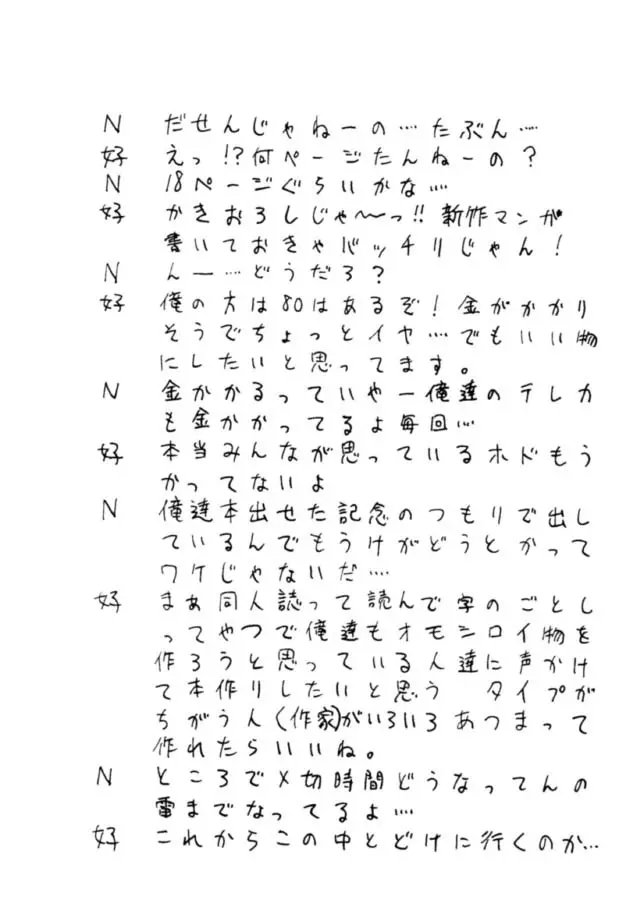 N だせんじゃねーの…たぶん…
好 えっ!?何ページたんねーの？
N 18ページぐらいかな…
好 かきおろしじゃ〜っ!!新作マンが
書いておきゃバッチリじゃん！
N んー…どうだろ？
好 俺の方は80はあるぞ！金がかかり
そうでちょっとイヤ…でもいい物
にしたいと思ってます。
N 金かかるっていやー俺達のテレカ
も金かかってるよ毎回…
好 本当みんなが思っているホドもう
かってないよ
N 俺達本出せた記念のつもりで出し
ているんでもうけがどうとかって
ワケじゃないだ…
好 まぁ同人誌って読んで字のごとし
ってやつで俺達もオモシロイ物を
作ろうと思っている人達に声かけ
て本作りしたいと思う タイプが
ちがう人(作家)がいろいろあつまって
作れたらいいね。
N ところで〆切時間どうなってんの
雷までなってるよ…
好 これからこの中とどけに行くのか…